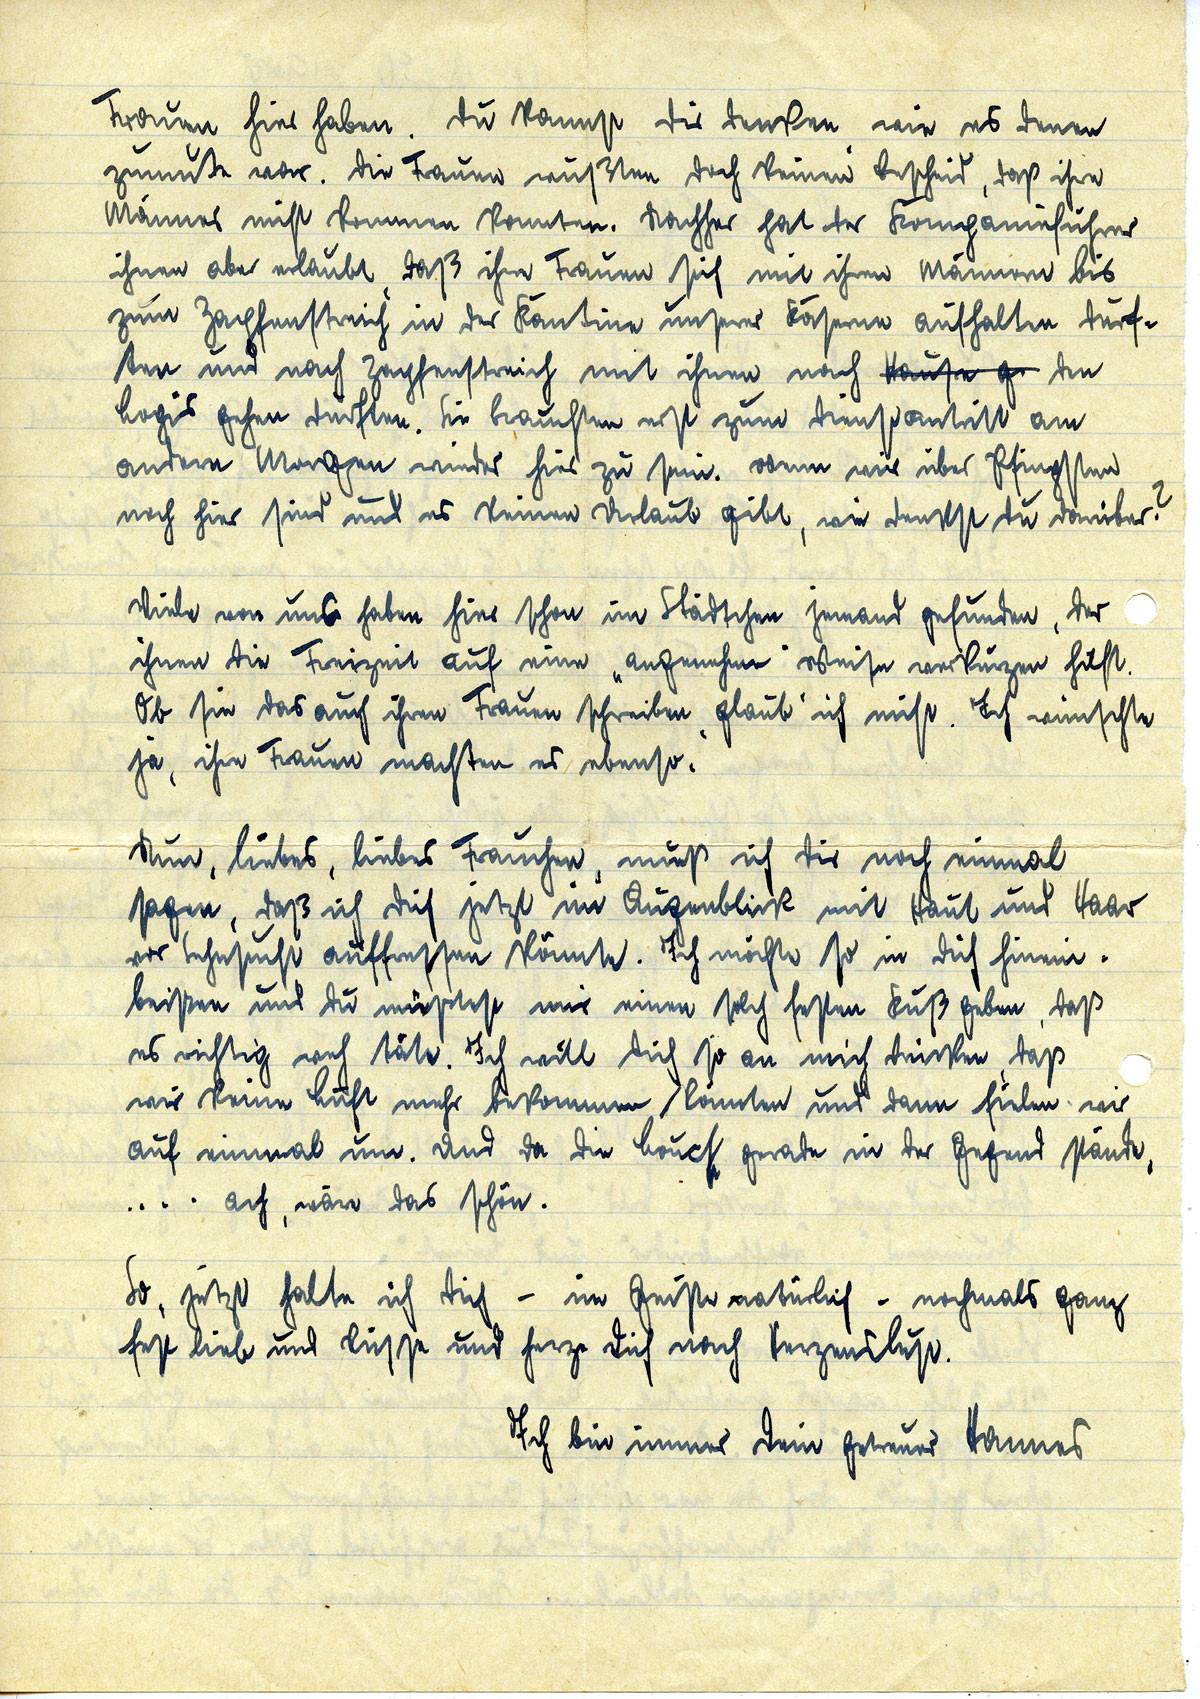 Frauen hier haben. Du kannst Dir denken wie es denen
zumute war. Die Frauen wußten doch keinen Bescheid, daß ihre
Männer nicht kommen konnten. Nachher hat der Kompanieführer
ihnen aber erlaubt, daß ihre Frauen sich mit ihren Männern bis
zum Zapfenstreich in der Kantine unserer Kaserne aufhalten durf-
ten und nach Zapfenstreich mit ihnen nach Hause g. den
Logis gehen dürften. Sie brauchten erst zum Dienstantritt am
andern Morgen wieder hier zu sein. Wenn wir über Pfingsten
noch hier sind und es keinen Urlaub gibt, wie denkst Du darüber?
Viele von uns haben hier schon im Städtchen jemand gefunden, der
ihnen die Freizeit auf eine „angenehme" Weise verkürzen hilft.
Ob sie das auch ihren Frauen schreiben, glaub' ich nicht. Ich wünschte
ja, ihre Frauen machten es ebenso.
Nun, liebes, liebes Frauchen, muß ich Dir noch einmal
sagen, daß ich Dich jetzt im Augenblick mit Haut und Haar
vor Sehnsucht auffressen könnte. Ich möchte so in Dich hinein-
beißen und Du müßtest mir einen solch festen Kuß geben, daß
es richtig weh täte. Ich will Dich so an mich drücken, daß
wir keine Luft mehr bekommen könnten und dann fielen wir
auf einmal um. Und da die Couch gerade in der Gegend stände,
.... ach, wäre das schön.
So, jetzt halte ich Dich – im Geiste natürlich – nochmals ganz
fest lieb und küsse und herze Dich nach Herzenslust.
Ich bin immer Dein getreuer Hannes